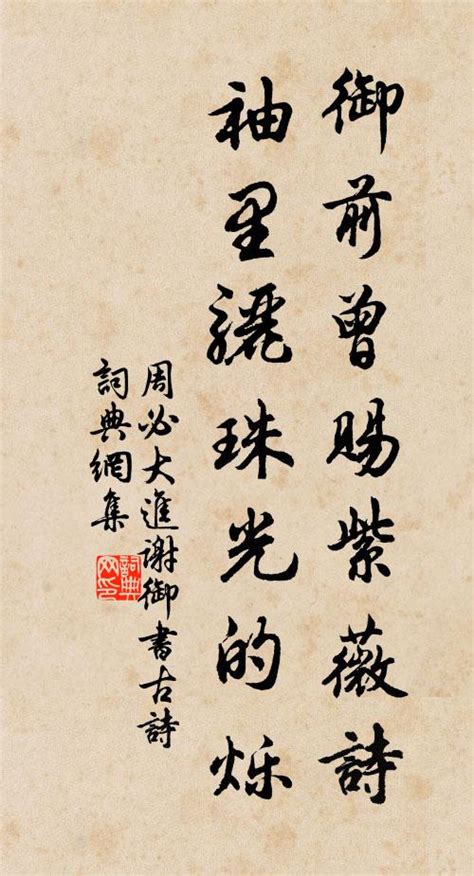 御前曾賜紫薇詩
袖里驪珠光的烁
周必大進謝御書古詩
詞典網集
詞典網印